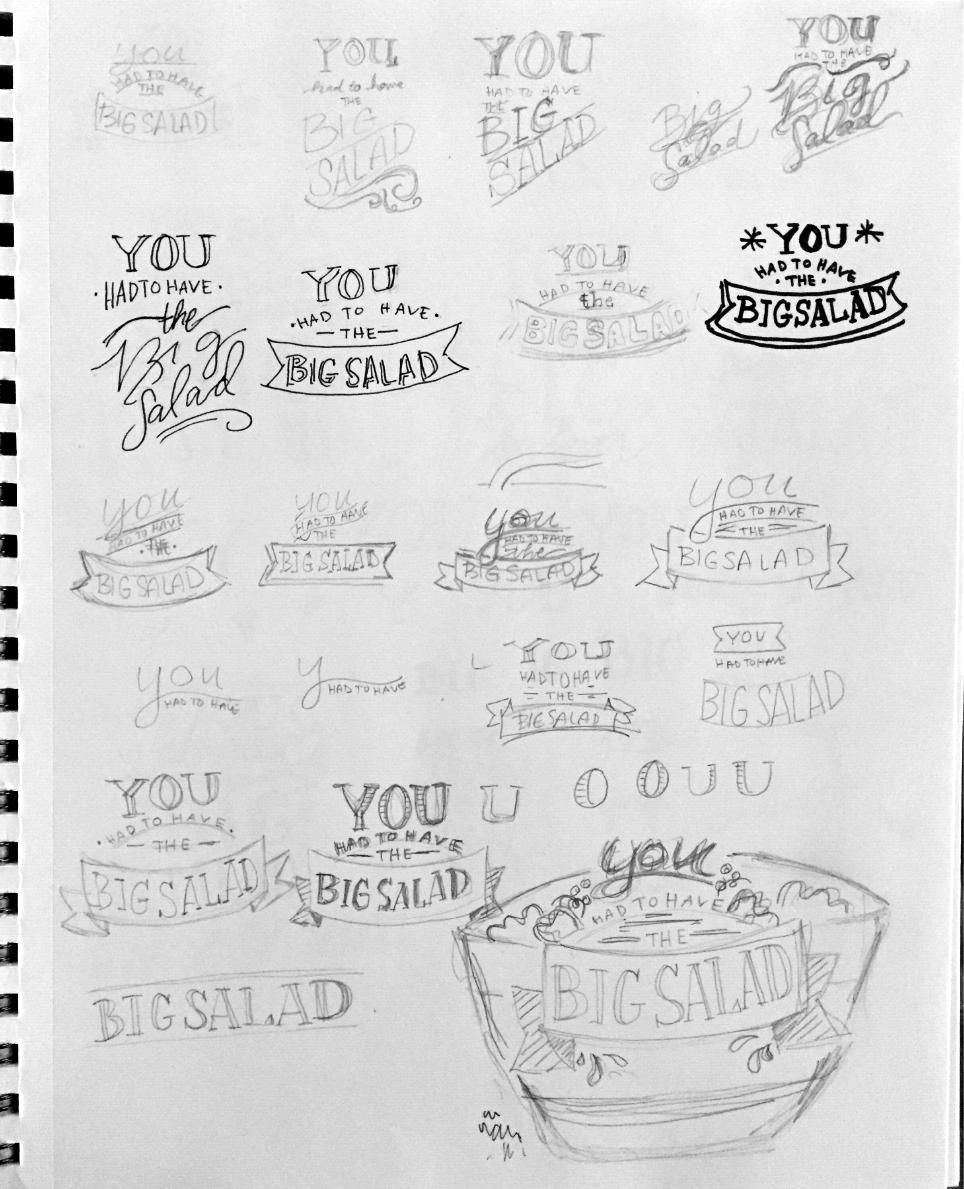 you
HAD TO HAVE
THE
BIG SALAD
YOU
had to have
THE
BIG
SALAD
YOU
HAD TO HAVE
THE
BIG
SALAD
Big
Salad
YOU
HAD TO HAVE
THE
Big
Salad
YOU
·HAD TO HAVE·
the
Big
Salad
YOU
·HAD TO HAVE·
—THE—
BIG SALAD
YOU
HAD TO HAVE
the
BIG SALAD
*YOU*
HAD TO HAVE
·THE·
BIG SALAD
you
HAD TO HAVE
·THE·
BIG SALAD
you
HAD TO HAVE
THE
BIG SALAD
you
HAD TO HAVE
the
BIG SALAD
you
HAD TO HAVE
THE
BIG SALAD
you
HAD TO HAVE
y
HAD TO HAVE
L
YOU
HAD TO HAVE
THE
BIG SALAD
YOU
HAD TO HAVE
BIG SALAD
YOU
·HAD TO HAVE·
—THE—
BIG SALAD
YOU
HAD TO HAVE
—THE—
BIG SALAD
U O O U U
you
HAD TO HAVE
THE
BIG SALAD
BIG SALAD